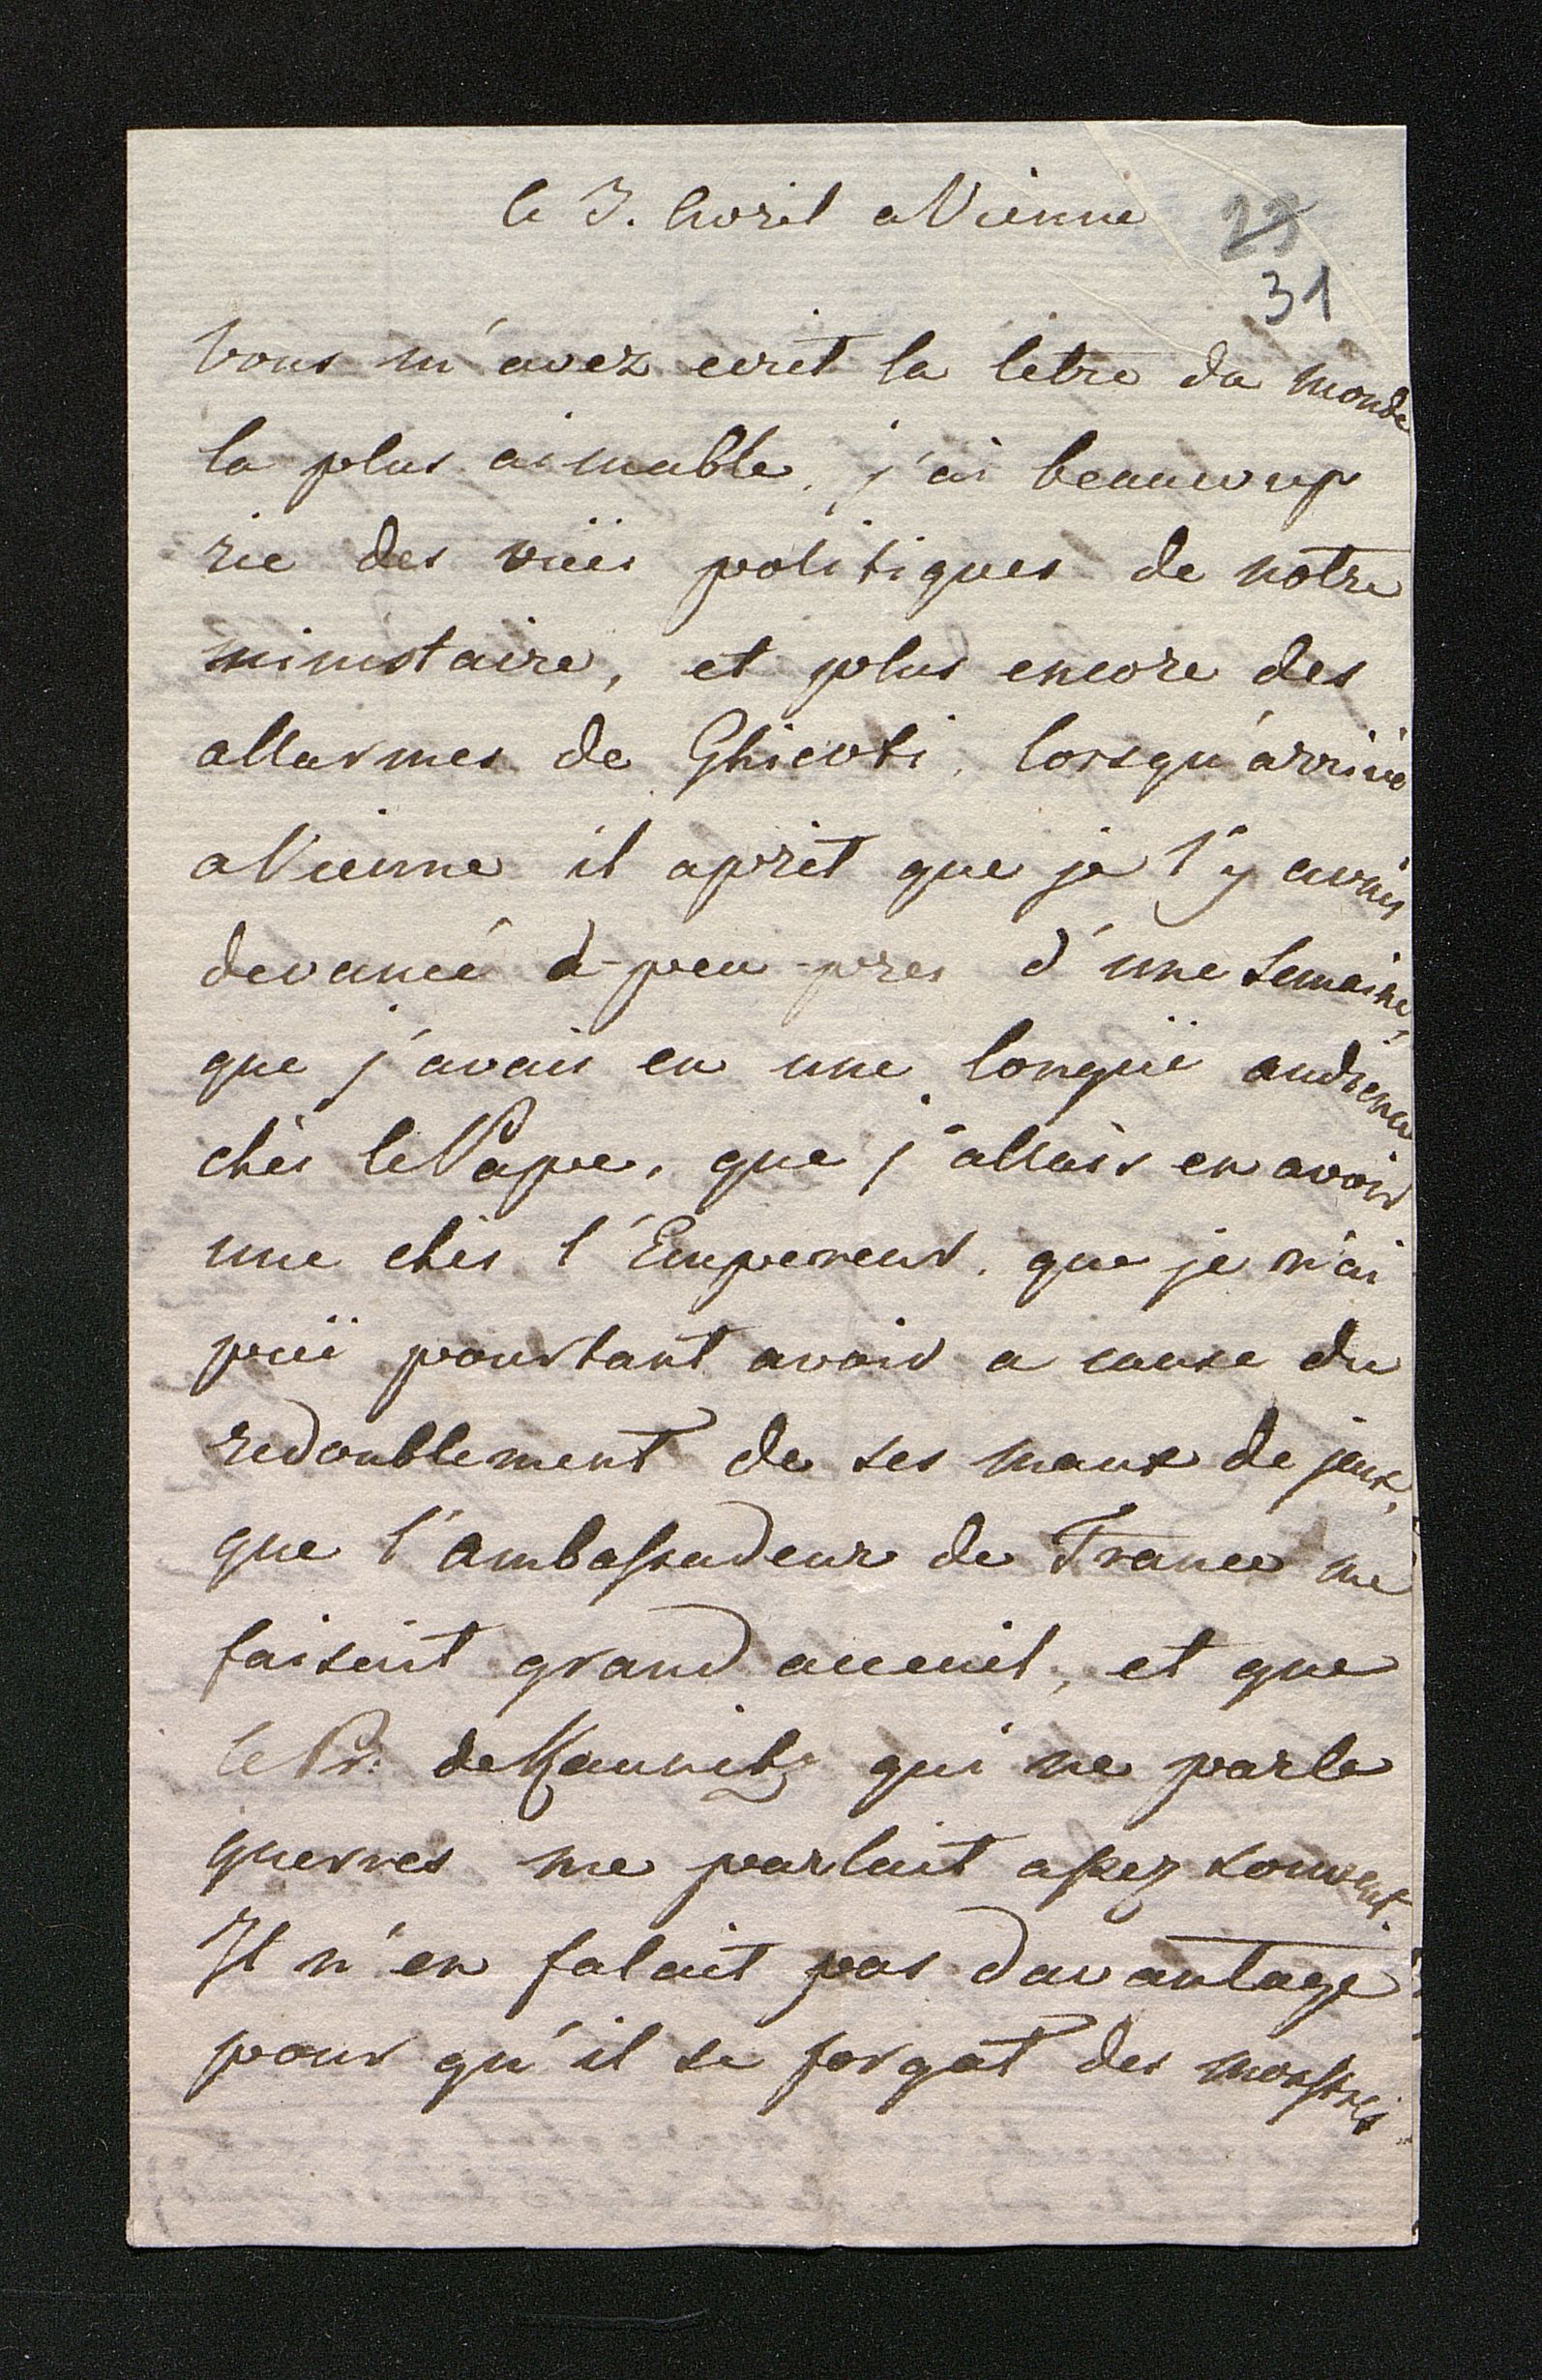 le 3. Avril a Vienne
29
31
Vous m'avez ecrit la letre du monde
la plus aimable, j'ai beaucoup
rie des vües politiques de notre
ministaire, et plus encore des
allarmes de lorsqu'arrivé
a Vienne il aprit que je l'y avais
devancé a-peu-pres d'une semaine,
que j'avais eu une longüe audience
chès le Pape, que j'allais en avoir
une chès l'Empereur, que je n'ai
püi pourtant avoir a cause du
redoublement de ses maux de jeux,
que l'ambassadeur de France me
faisait grand acceuil, et que
le Pr. de Kaunitz qui ne parle
guerres me parlait assez souvent.
Il n'en falait pas davantage
pour qu'il se forgat des monstres